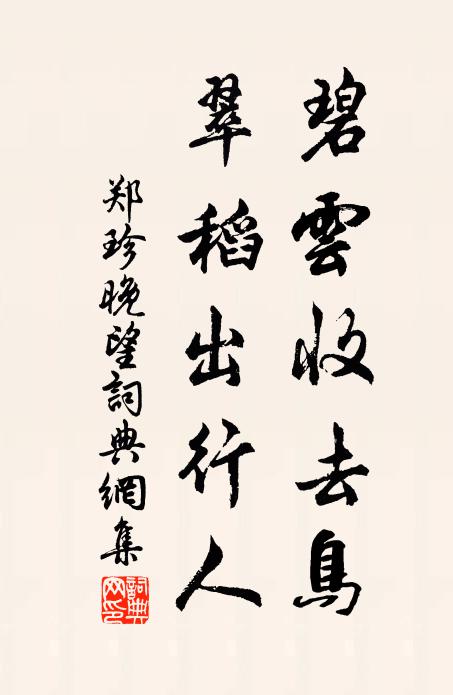 碧雲收去鳥
翠稻出行人
郑珍晚望詞典網集
詞典网印